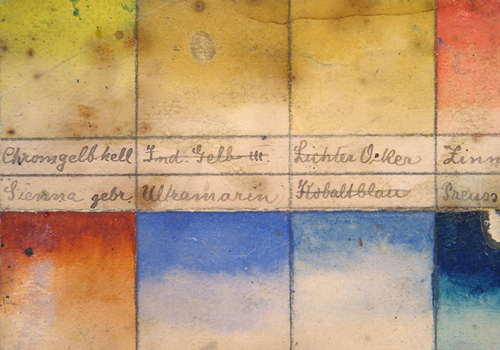 Chromgelb hell Ind. Gelb III. Lichter Ocker Zinn
Sienna gebr. Ultramarin Kobaltblau Preuss